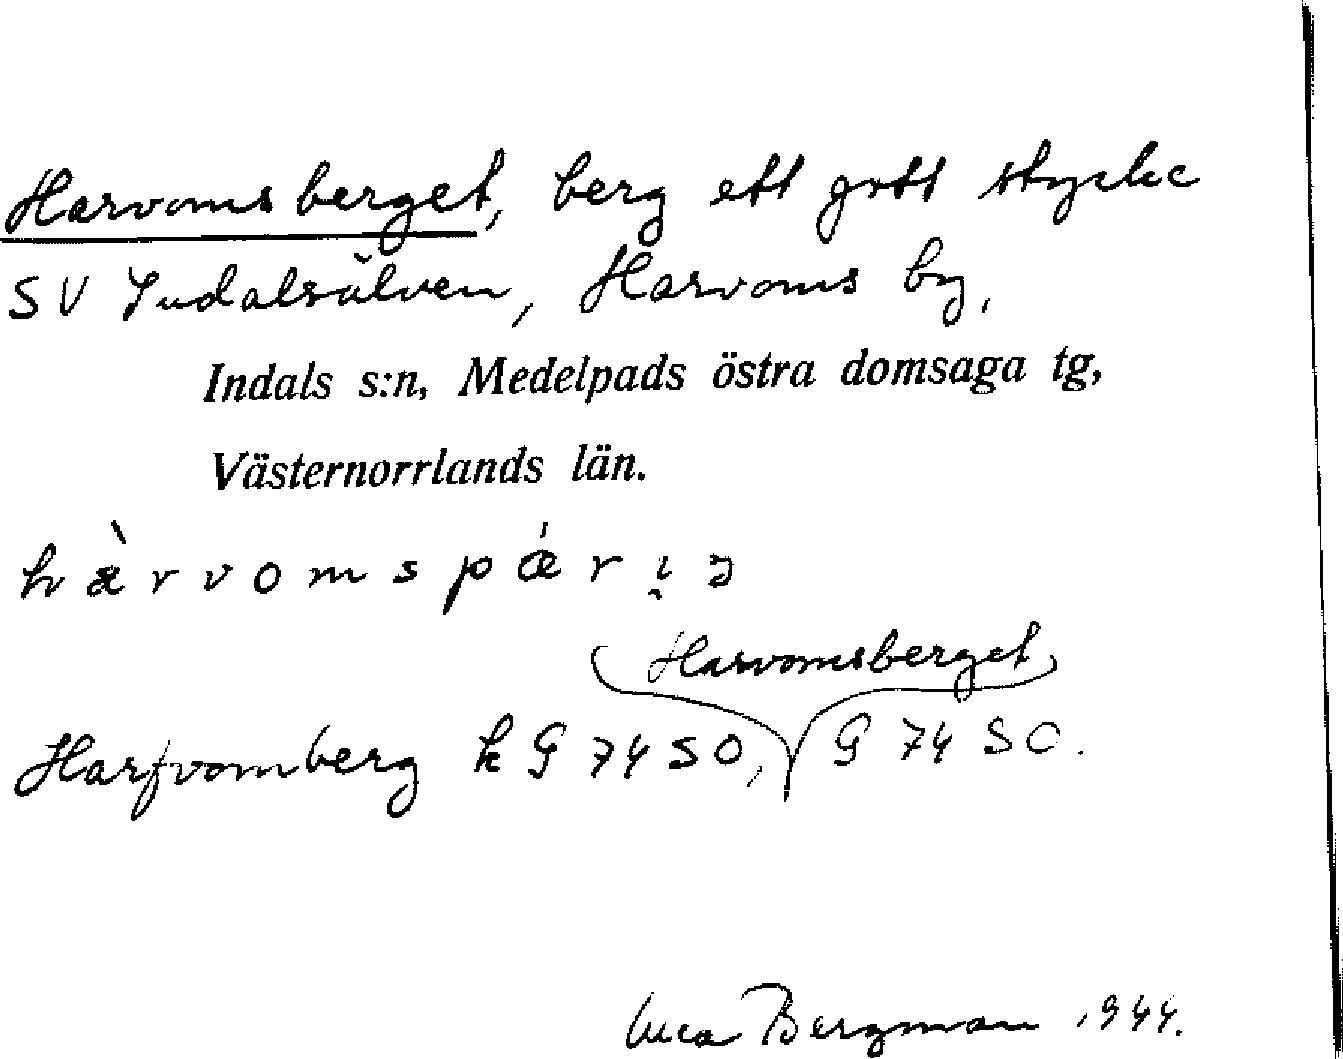 Harvomsberget, berg ett gott stycke
SV Indalsälven, Harvoms by,
Indals s:n, Medelpads östra domsaga tg,
Västernorrlands län.
hæ̀rvomspǽri̯ə
Harvomsberget
Harfvomberg k G 74 SO, G 74 SO.
Bergman 1944.